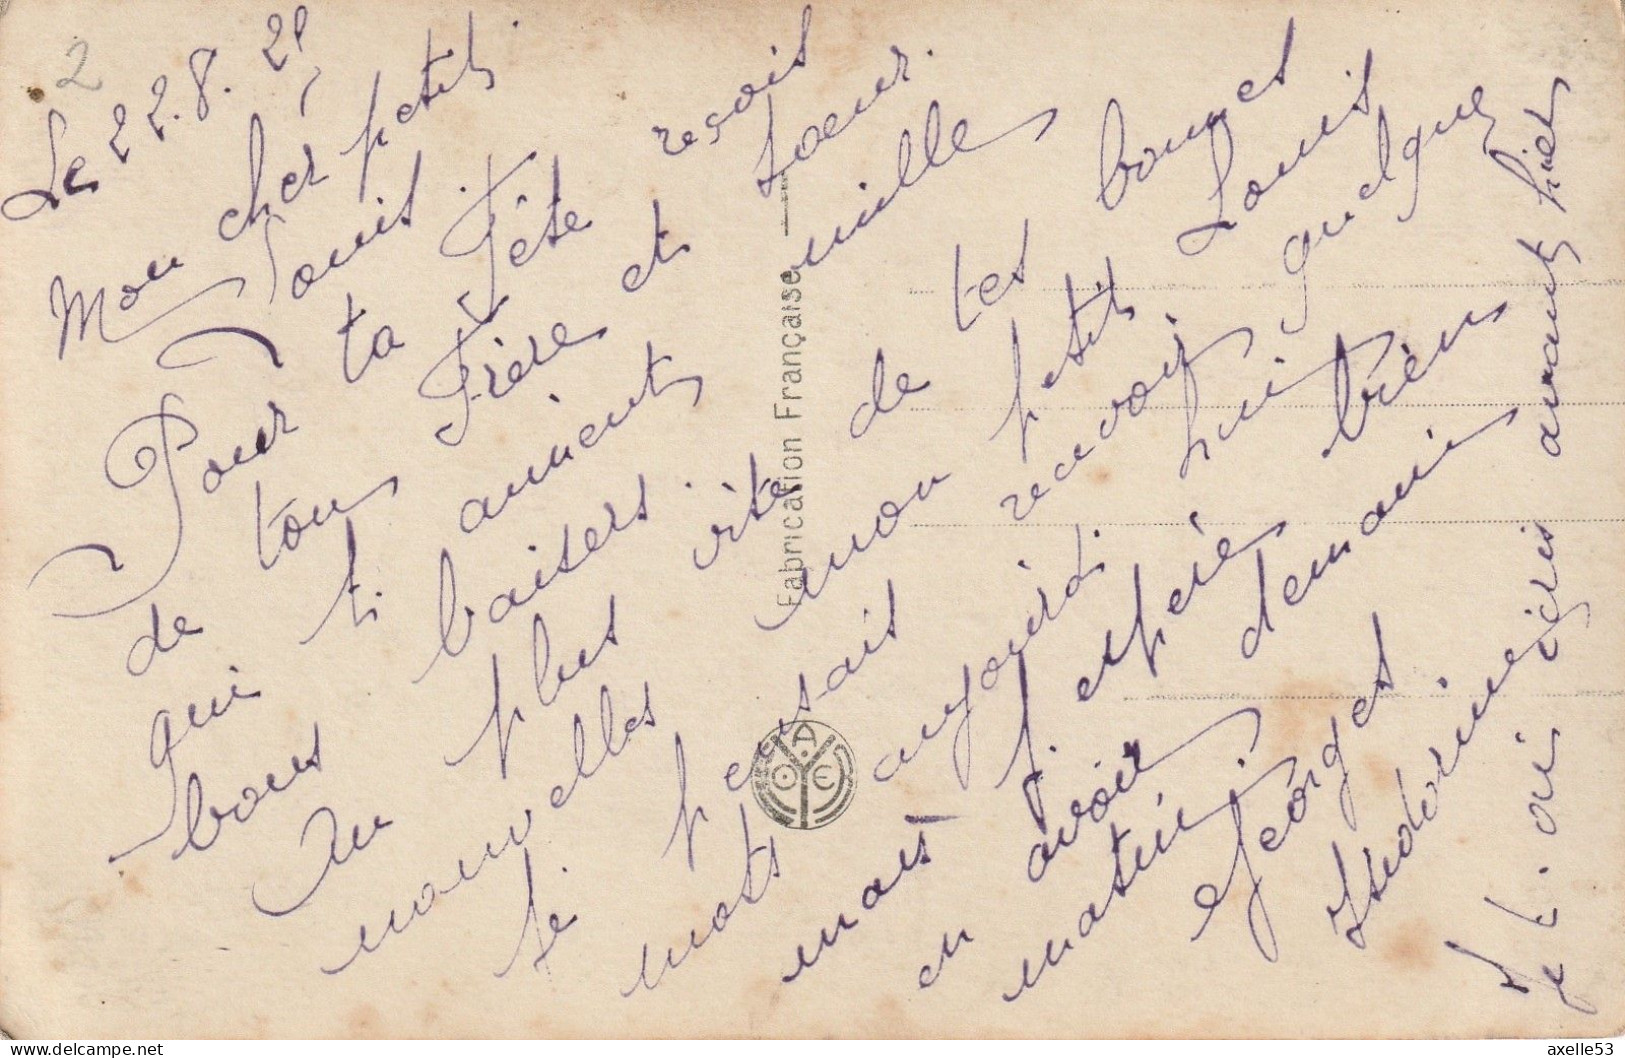 Le 22.8.21
Mon cher petit
Louis
Pour ta Fête reçois
de ton Frère et Soeur.
qui t'aiment mille
bons baisers
Au plus vite de tes bonnes
nouvelles mon petit Louis
Je pensais recevoir quelque
mots aujourd. hui
mais j'espère bien
en avoir demain
matin.
Georges
Je t'ai écris avant hier
Fabrication Française
A
O E
axelle53